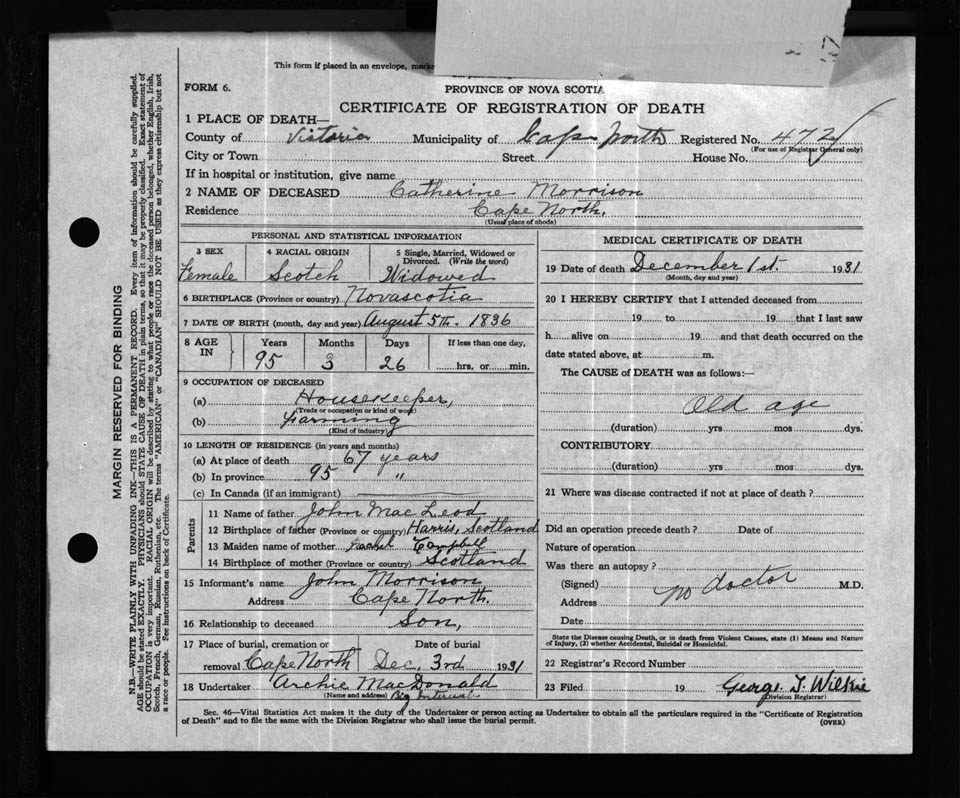 This form if placed in an envelope,
FORM 6.
PROVINCE OF NOVA SCOTIA
CERTIFICATE OF REGISTRATION OF DEATH
1 PLACE OF DEATH—
County of Victoria Municipality of Cape North Registered No. 472
(For use of Registrar General only)
City or Town Street House No.
If in hospital or institution, give name
2 NAME OF DECEASED Catherine Morrison
Residence Cape North.
(Usual place of abode)
PERSONAL AND STATISTICAL INFORMATION
3 SEX 4 RACIAL ORIGIN 5 Single, Married, Widowed or Divorced. (Write the word)
Female Scotch Widowed
6 BIRTHPLACE (Province or country) Novascotia
7 DATE OF BIRTH (month, day and year) August 5th. 1836
8 AGE IN Years Months Days If less than one day,
95 3 26 hrs. or min.
9 OCCUPATION OF DECEASED
(a) Housekeeper,
(Trade or occupation or kind of work)
(b) Farming
(Kind of industry)
10 LENGTH OF RESIDENCE (in years and months)
(a) At place of death 67 years
(b) In province 95 "
(c) In Canada (if an immigrant)
Parents
11 Name of father John Mac Leod
12 Birthplace of father (Province or country) Harris, Scotland
13 Maiden name of mother Rachel Campbell
14 Birthplace of mother (Province or country) Scotland
15 Informant's name John Morrison
Address Cape North.
16 Relationship to deceased Son,
17 Place of burial, cremation or removal Cape North
Date of burial Dec. 3rd 1931
18 Undertaker Archie MacDonald
(Name and address) Big
MEDICAL CERTIFICATE OF DEATH
19 Date of death December 1st. 1931
(Month, day and year)
20 I HEREBY CERTIFY that I attended deceased from
19 to 19 that I last saw
h alive on 19 and that death occurred on the
date stated above, at m.
The CAUSE of DEATH was as follows:—
Old age
(duration) yrs mos dys.
CONTRIBUTORY
(duration) yrs mos dys.
21 Where was disease contracted if not at place of death?
Did an operation precede death? Date of
Nature of operation
Was there an autopsy?
(Signed) no doctor M.D.
Address
Date
State the Disease causing Death, or in death from Violent Causes, state (1) Means and Nature
of Injury, (2) whether Accidental, Suicidal or Homicidal.
22 Registrar's Record Number
23 Filed 19 George T. Wilkie
(Division Registrar)
Sec. 46—Vital Statistics Act makes it the duty of the Undertaker or person acting as Undertaker to obtain all the particulars required in the "Certificate of Registration
of Death" and to file the same with the Division Registrar who shall issue the burial permit. (OVER)
MARGIN RESERVED FOR BINDING
N.B.—WRITE PLAINLY WITH UNFADING INK—THIS IS A PERMANENT RECORD. Every item of information should be carefully supplied.
AGE should be stated EXACTLY. PHYSICIANS should STATE CAUSE OF DEATH in plain terms, so that it may be properly classified. Exact statement of
OCCUPATION is very important. RACIAL ORIGIN will be described by stating to what people or race the deceased person belonged, whether English, Irish,
Scotch, French, German, Russian, Ruthenian, etc. The terms "AMERICAN" or "CANADIAN" SHOULD NOT BE USED as they express citizenship but not
a race or people. See instructions on back of Certificate.